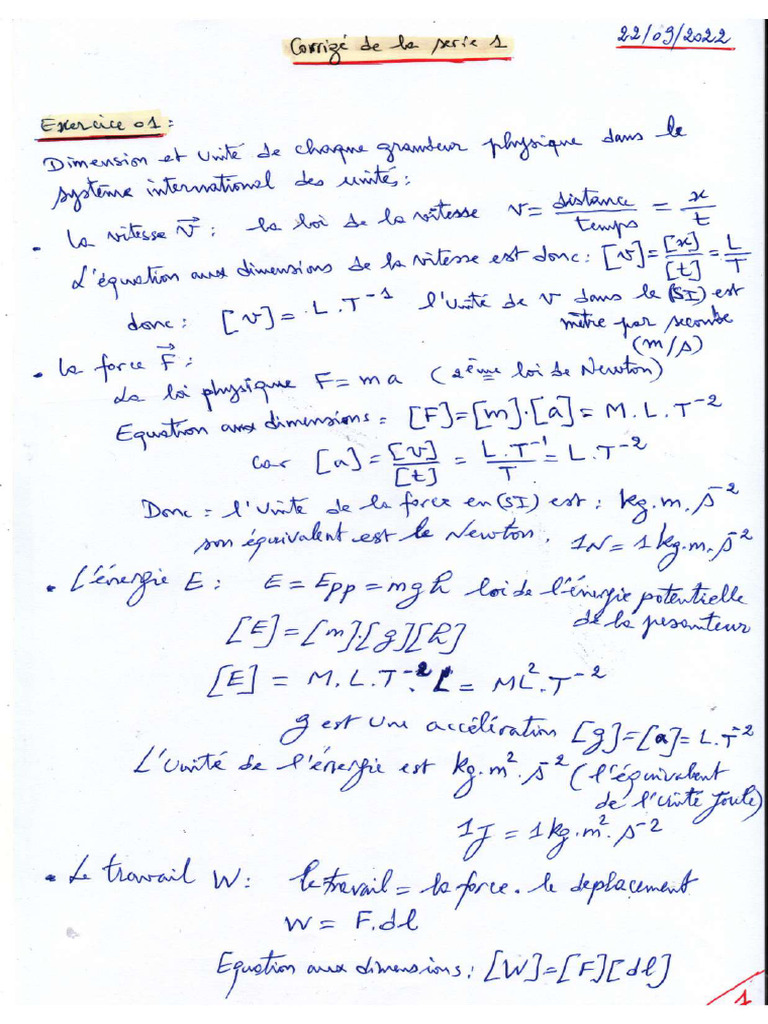 Corrigé de la serie 1
22/09/2022
Exercice 01 :
Dimension et unité de chaque grandeur physique dans le
système international des unités :
• La vitesse V⃗ : la loi de la vitesse v = distance/temps = x/t
L'équation aux dimensions de la vitesse est donc : [v] = [x]/[t] = L/T
donc : [v] = L.T⁻¹ l'unité de v dans le (SI) est
mètre par seconde
(m/s)
• La force F⃗ :
La loi physique F = ma (2ème loi de Newton)
Equation aux dimensions = [F] = [m].[a] = M.L.T⁻²
car [a] = [v]/[t] = L.T⁻¹/T = L.T⁻²
Donc = l'unité de la force en (SI) est : kg.m.s⁻²
son équivalent est le Newton. 1N = 1kg.m.s⁻²
• L'énergie E : E = Epp = mgh loi de l'énergie potentielle
de la pesanteur
[E] = [m].[g][h]
[E] = M.L.T⁻².L = ML².T⁻²
g est une accélération [g] = [a] = L.T⁻²
L'unité de l'énergie est kg.m².s⁻² (l'équivalent
de l'unité Joule)
1J = 1kg.m².s⁻²
• Le travail W : le travail = la force . le deplacement
W = F.dl
Equation aux dimensions : [W] = [F][dl]
1